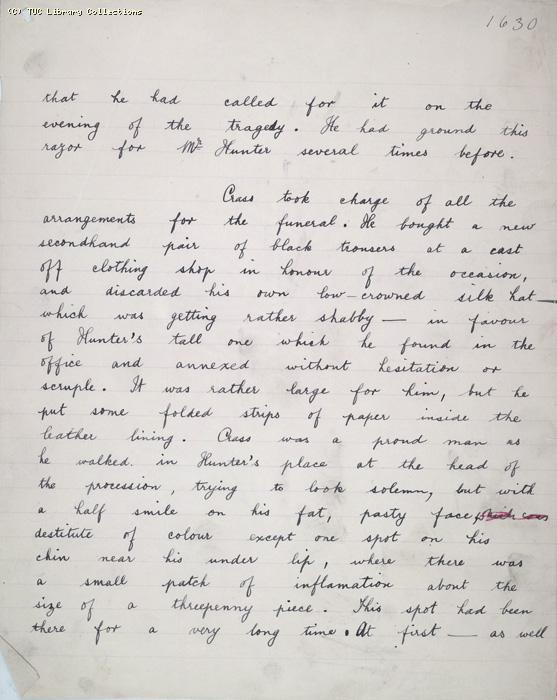 (C) TUC Library Collections
1630
that he had called for it on the
evening of the tragedy. He had ground this
razor for Mr Hunter several times before.
Crass took charge of all the
arrangements for the funeral. He bought a new
secondhand pair of black trousers at a cast
off clothing shop in honour of the occasion,
and discarded his own low-crowned silk hat —
which was getting rather shabby — in favour
of Hunter's tall one which he found in the
office and annexed without hesitation or
scruple. It was rather large for him, but he
put some folded strips of paper inside the
leather lining. Crass was a proud man as
he walked in Hunter's place at the head of
the procession, trying to look solemn, but with
a half smile on his fat, pasty face,
destitute of colour except one spot on his
chin near his under lip, where there was
a small patch of inflamation about the
size of a threepenny piece. This spot had been
there for a very long time. At first — as well